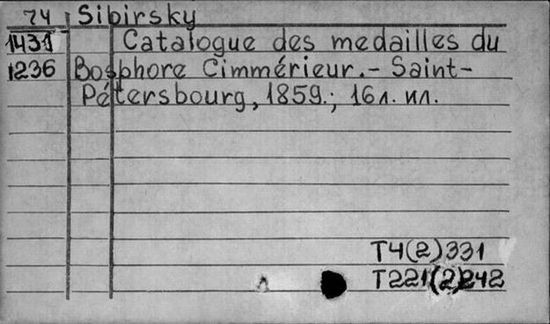 74 Sibirsky
1431 Catalogue des medailles du
1236 Bosphore Cimmérieur.- Saint-
Pétersbourg, 1859.; 16 л. ил.
T4(2)331
T221(2)242